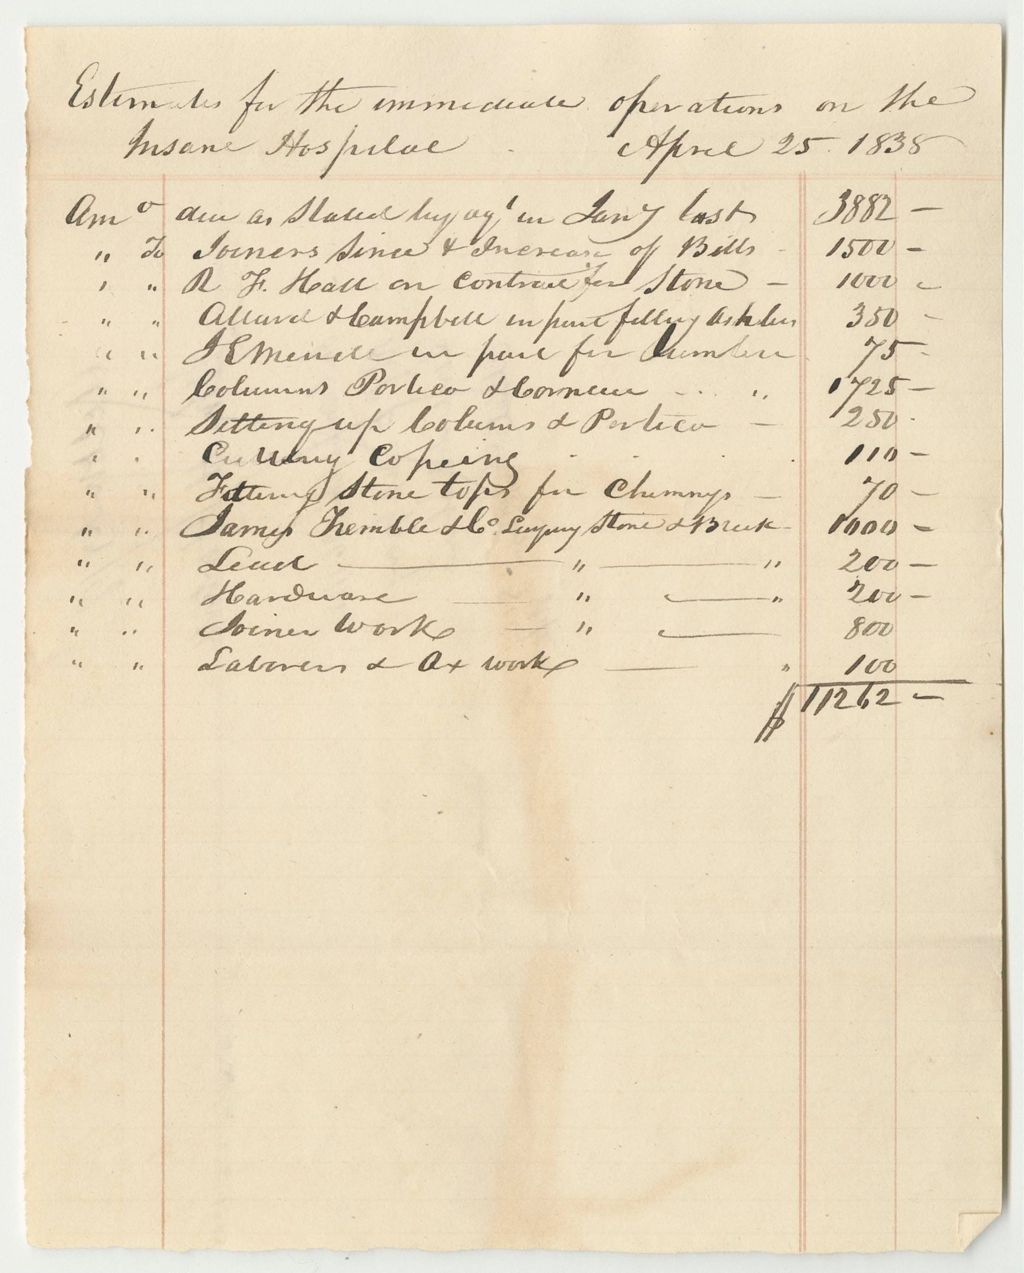 Estimates for the immediate operations on the
Insane Hospital. April 25. 1838
Amo due as Stated by agt in Jany last 3882 —
" To Joiners Since & Increase of Bills - 1500 —
" " R. F. Hall on Contract for Stone — 1000 -
" " Allard & Campbell in part filling Ashler 350 -
" " J E in part for Lumber 75 -
" " Columns Portico & Cornice - .. " 1725 —
" " Setting up Colums & Portico — 250 -
" " Cutting Copeing . . . 110 —
" " Fitting Stone tops for Chimnys — 70 —
" " James & Co. Laying Stone & Brick - 1000 —
" " Lead — " — " 200 —
" " Hardware — " — " 200 —
" " Joiner Work — " — 800
" " Laborers & Ox work — " 100
$ 11262 —